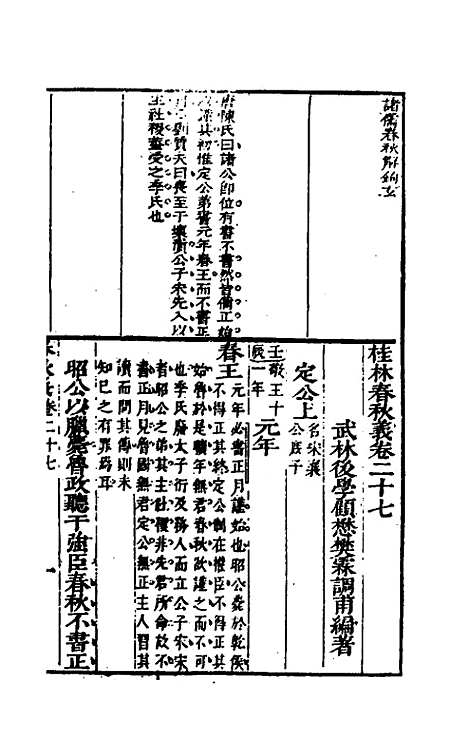 諸儒春秋解鈎玄
唐陳氏曰諸公即位有書不書然皆備正始
其初惟定公第書元年春王而不書正
月劉質夫曰喪至于壞隤公子宋先入以
主社稷蓋受之季氏也
桂林春秋義卷二十七
武林後學顧懋樊霖調甫編著
定公上
名宋襄
公庶子
壬敬王十
辰一年
元年
春王
元年必書正月謹始也昭公薨於乾侯
不得正其終定公制在權臣不得正其
始魯於是曠年無君春秋欲謹之而不可
也季氏廢太子衍及務人而立公子宋宋
者昭公之弟其主社稷非先君所命故不
書正月見魯國無君定公無正主人習其
讀而問其傳則未
知己之有罪焉耳
昭公以臘薨魯政聽于強臣春秋不書正
春秋義卷二十七
一